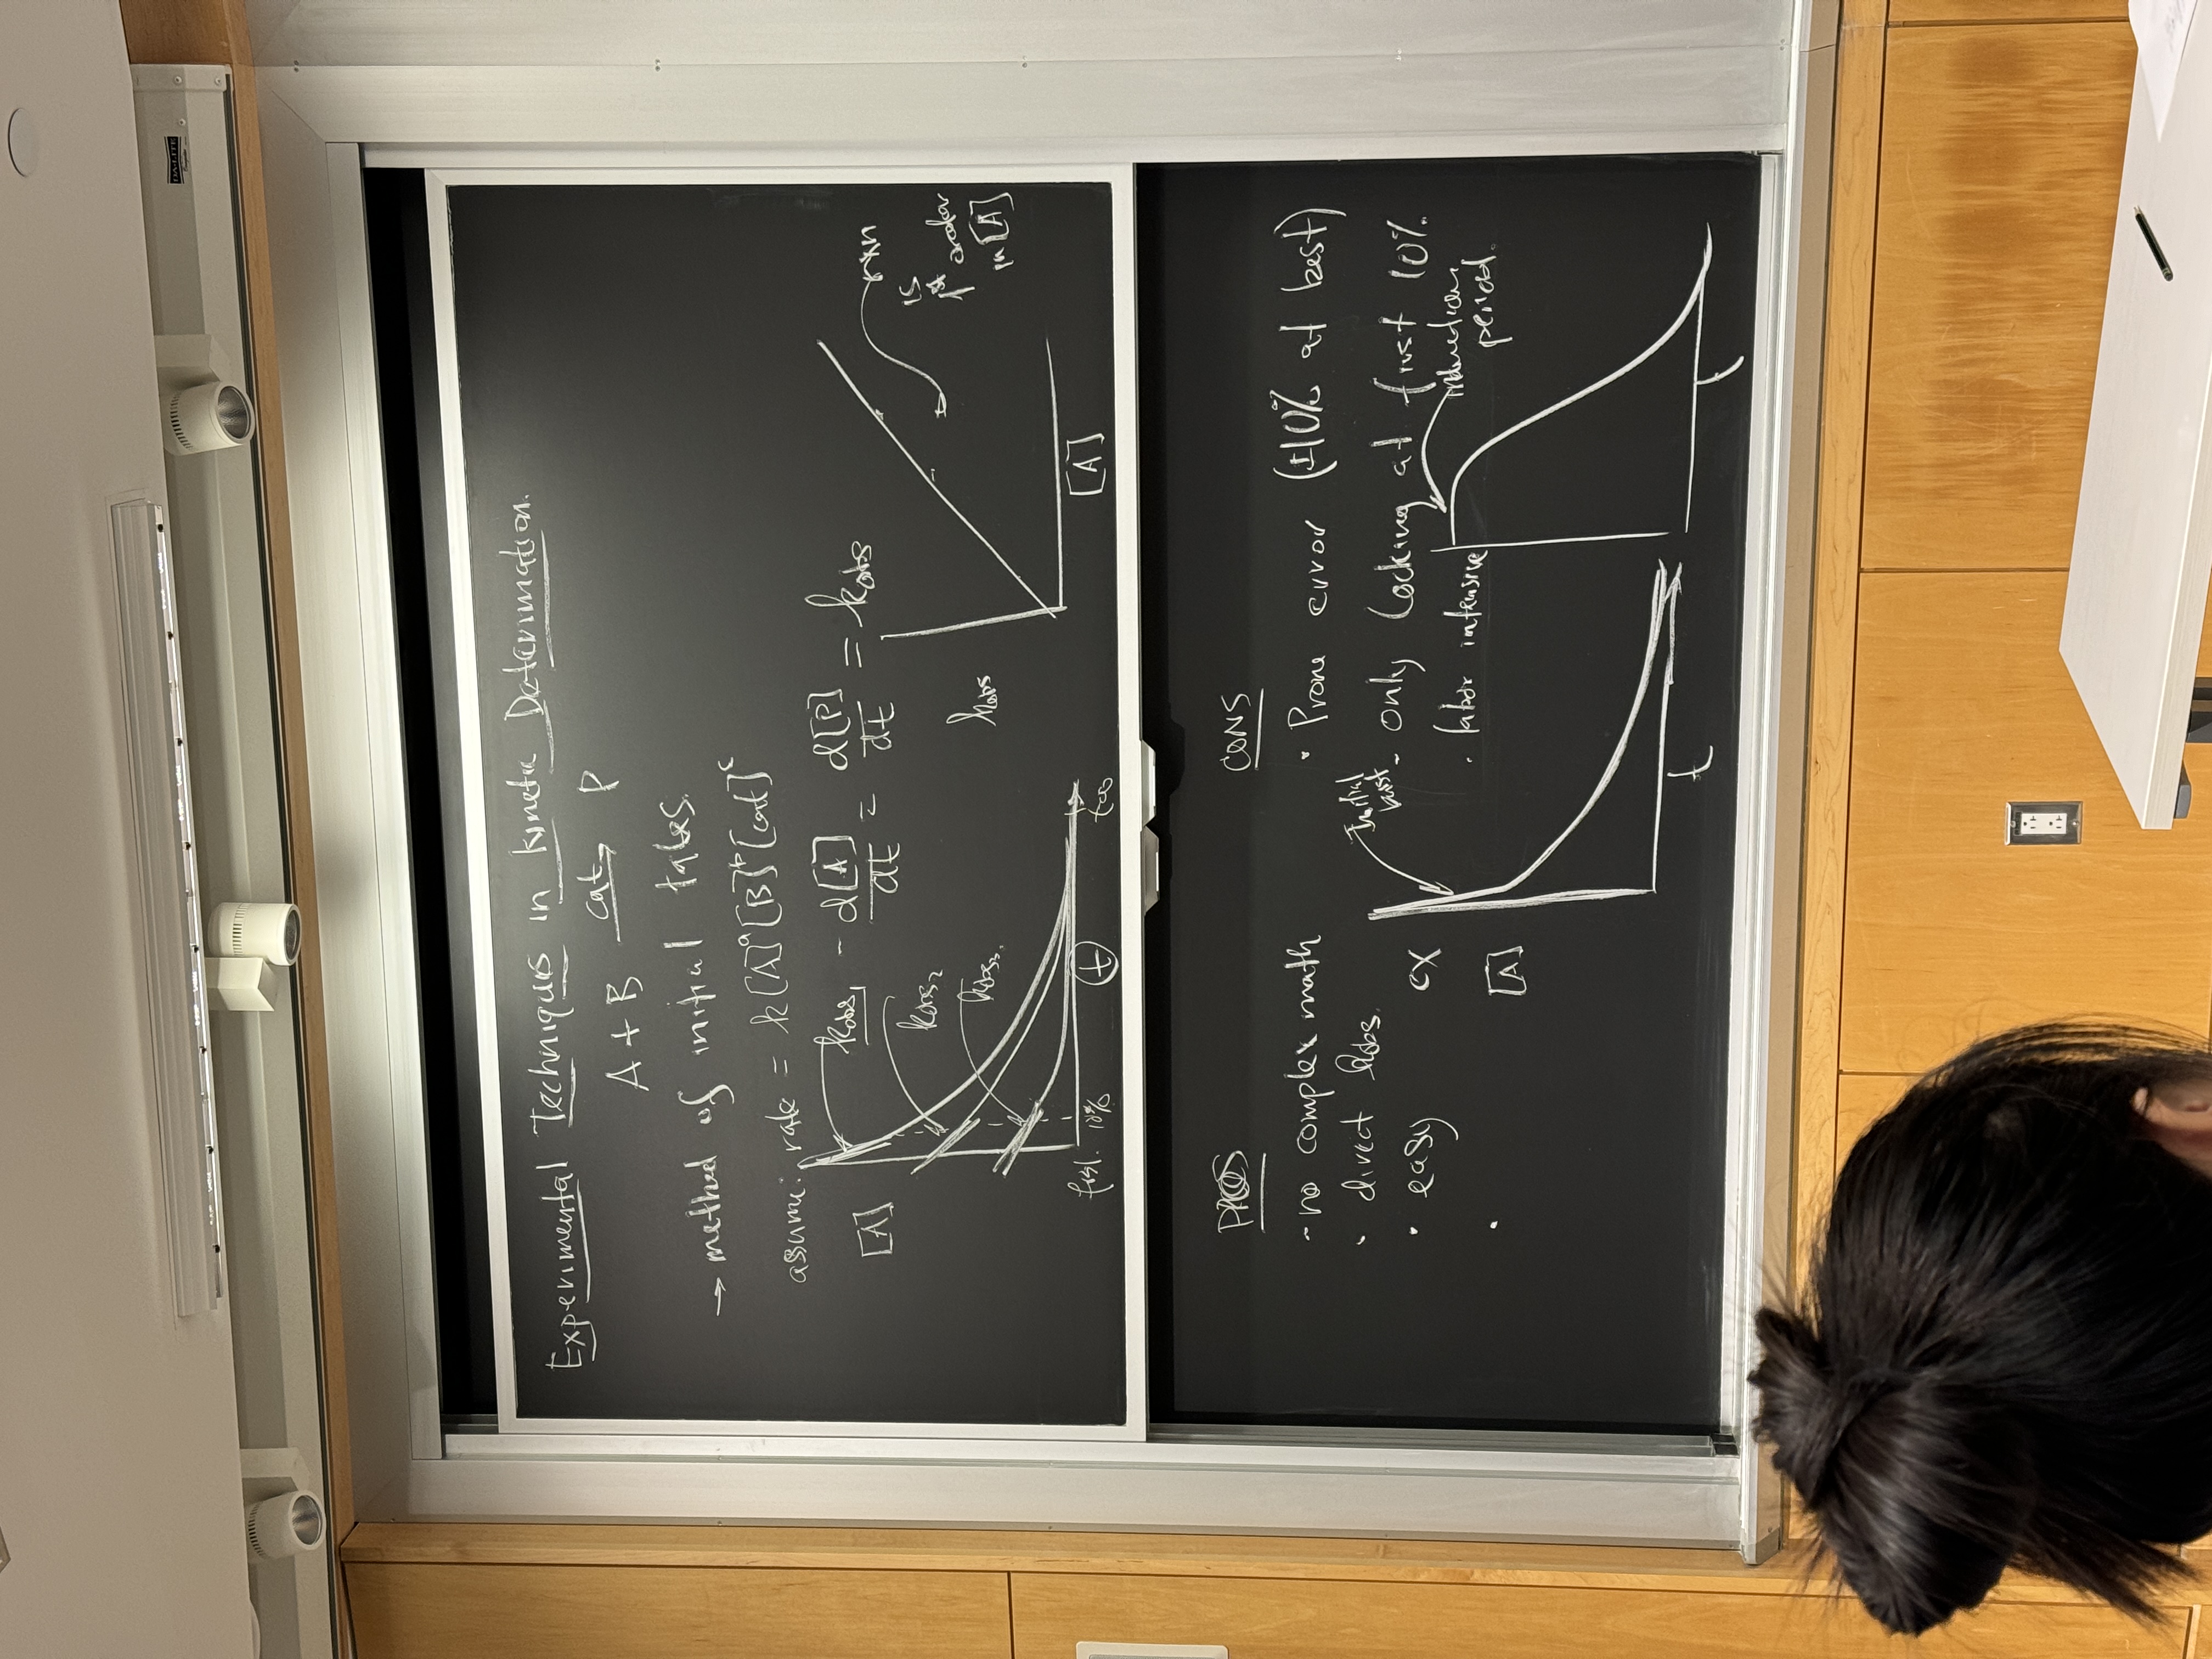 DA-LITE
Experimental Techniques in Kinetic Determination.
A + B cat→ P
→ method of initial rates.
assume: rate = k[A]ᵃ[B]ᵇ[cat]ᶜ
[A]
kobs₁
- d[A]/dt = d[P]/dt = kobs
kobs₂
kobs₃.
first. 10%
t
t∞
kobs
[A]
rxn
is
1st order
in [A]
PROS
- no complex math
· direct kobs.
· easy
·
CONS
· Prone error (±10% at best)
- Only looking at first 10%
· labor intensive
ex
[A]
Initial
burst
t
induction
period.
t